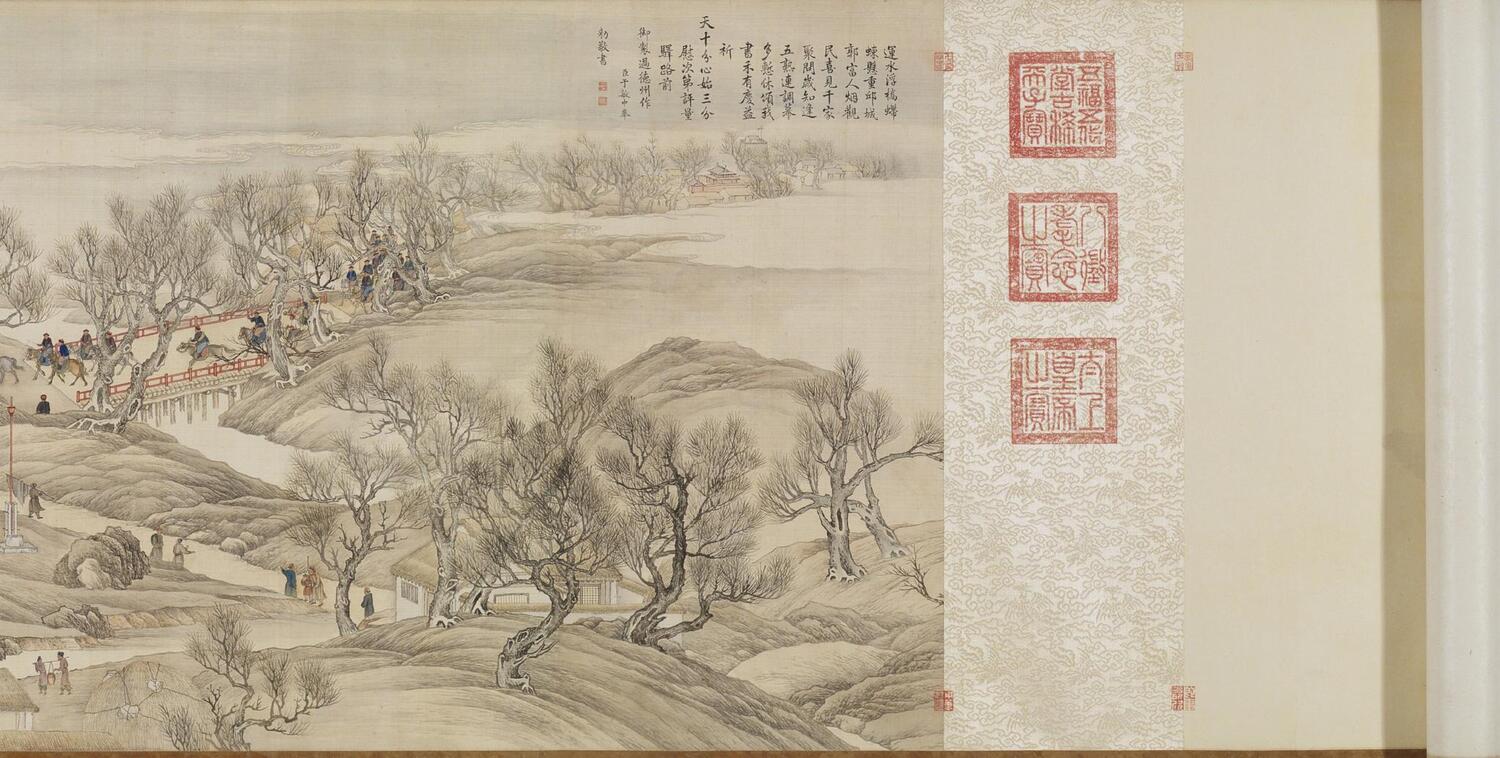 五福五代
堂古稀
天子寶
八徵
耄念
之寶
太上
皇帝
之寶
運水浮橋螮
蝀懸重邱城
郭富人烟觀
民喜見千家
聚問歲知逢
五熟連調幕
多慙休頌我
書禾有慶益
祈
天十分心始三分
慰次第評量
驛路前
御製過德州作
臣于敏中奉
勅敬書